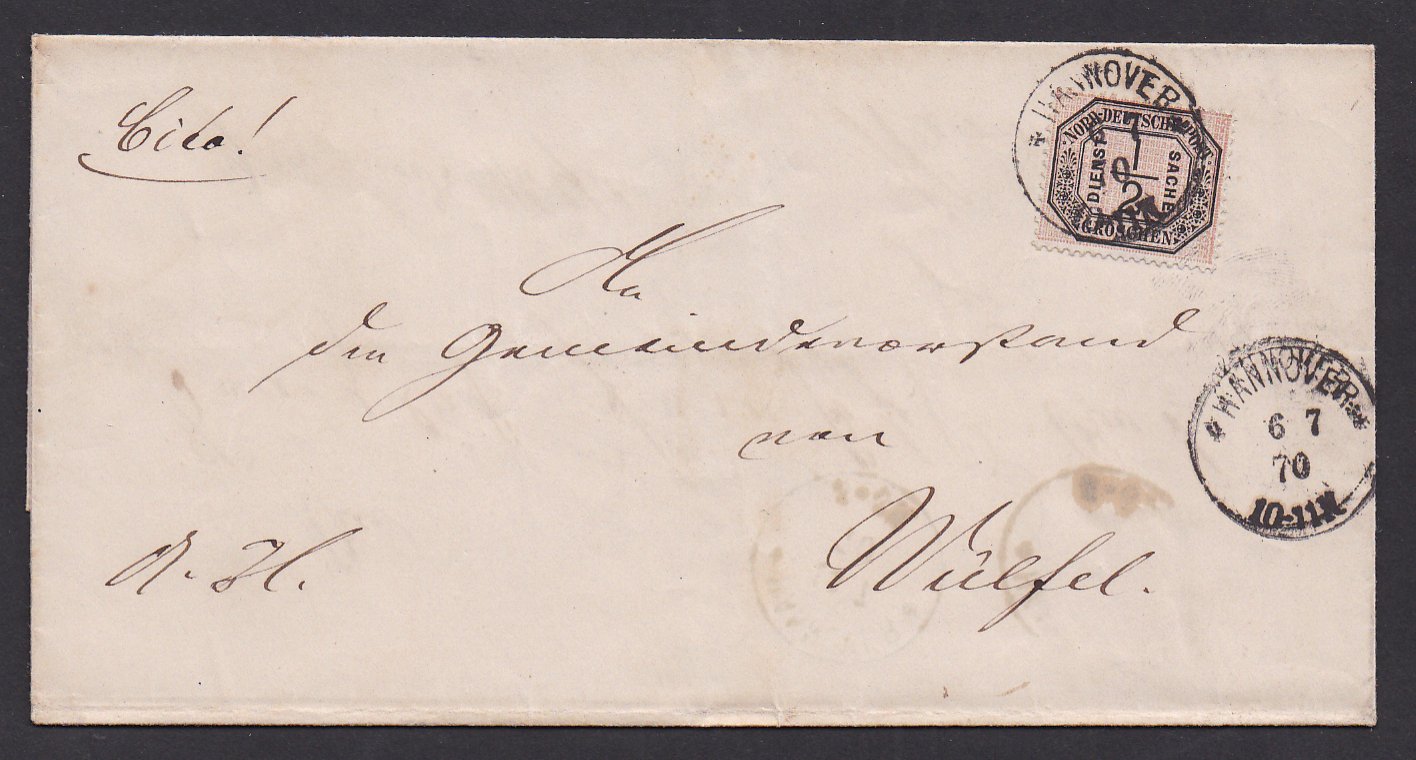 Cito!
HANNOVER
NORDDEUTSCHE POST
DIENST SACHE
1/2
GROSCHEN
An
den Gemeindevorstand
von
HANNOVER
6 7
70
10-11N
Wülfel.